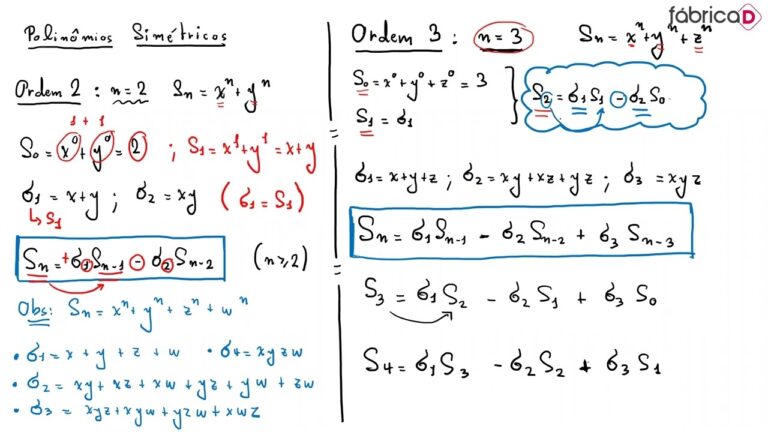 Polinômios Simétricos
Ordem 2 : n=2 Sn = xⁿ + yⁿ
1 + 1
S₀ = x⁰ + y⁰ = 2 ; S₁ = x¹ + y¹ = x + y
σ₁ = x + y ; σ₂ = xy (σ₁ = S₁)
↳ S₁
Sn = +σ₁Sn-1 − σ₂Sn-2 (n≥2)
Obs: Sn = xⁿ + yⁿ + zⁿ + wⁿ
• σ₁ = x + y + z + w • σ₄ = xyzw
• σ₂ = xy + xz + xw + yz + yw + zw
• σ₃ = xyz + xyw + yzw + xwz
fábricaD
Ordem 3 : n=3 Sn = xⁿ + yⁿ + zⁿ
S₀ = x⁰ + y⁰ + z⁰ = 3
S₁ = σ₁
S₂ = σ₁S₁ − σ₂S₀
σ₁ = x + y + z ; σ₂ = xy + xz + yz ; σ₃ = xyz
Sn = σ₁Sn-1 − σ₂Sn-2 + σ₃Sn-3
S₃ = σ₁S₂ − σ₂S₁ + σ₃S₀
S₄ = σ₁S₃ − σ₂S₂ + σ₃S₁